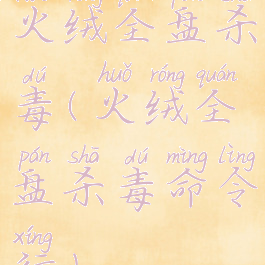 火绒全盘杀
dú huǒ róng quán
毒(火绒全
pán shā dú mìng lìng
盘杀毒命令
xíng